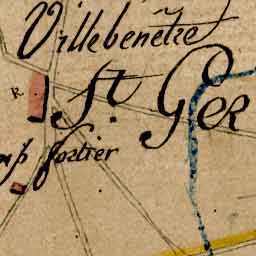 Villebenêtre
R.
St. Ger
fortier